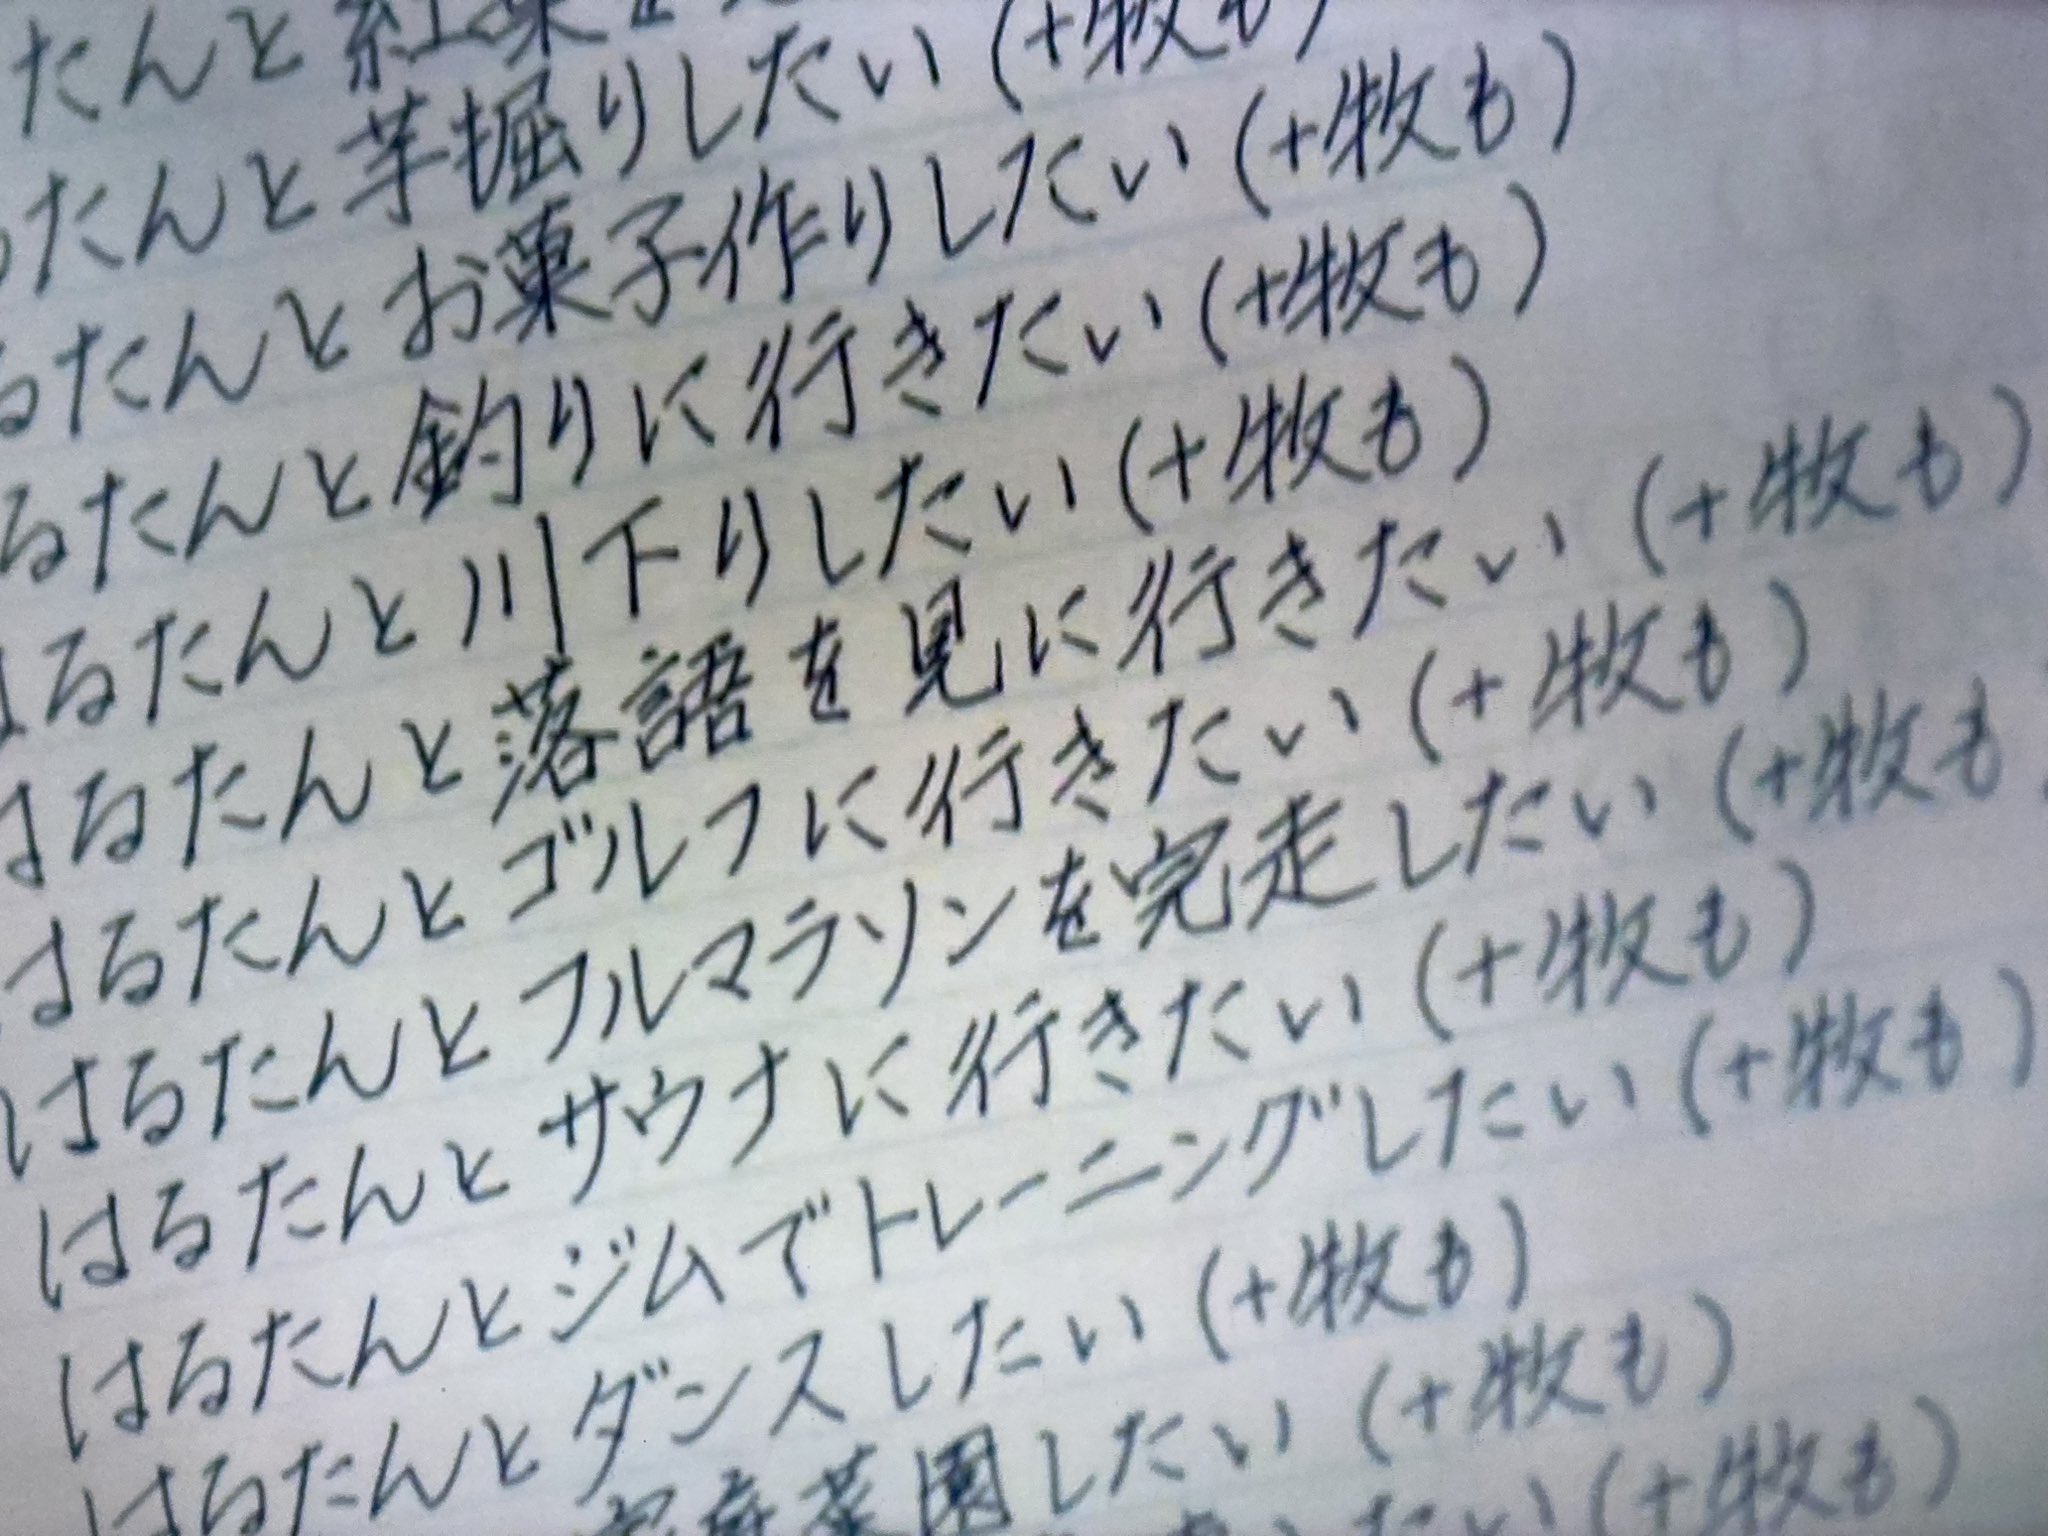 たんと紅葉
たんと芋堀りしたい(+牧も)
るたんとお菓子作りしたい(+牧も)
るたんと釣りに行きたい(+牧も)
はるたんと川下りしたい(+牧も)
はるたんと落語を見に行きたい(+牧も)
はるたんとゴルフに行きたい(+牧も)
はるたんとフルマラソンを完走したい(+牧も)
はるたんとサウナに行きたい(+牧も)
はるたんとジムでトレーニングしたい(+牧も)
はるたんとダンスしたい(+牧も)
家庭菜園したい(+牧も)
たい(+牧も)